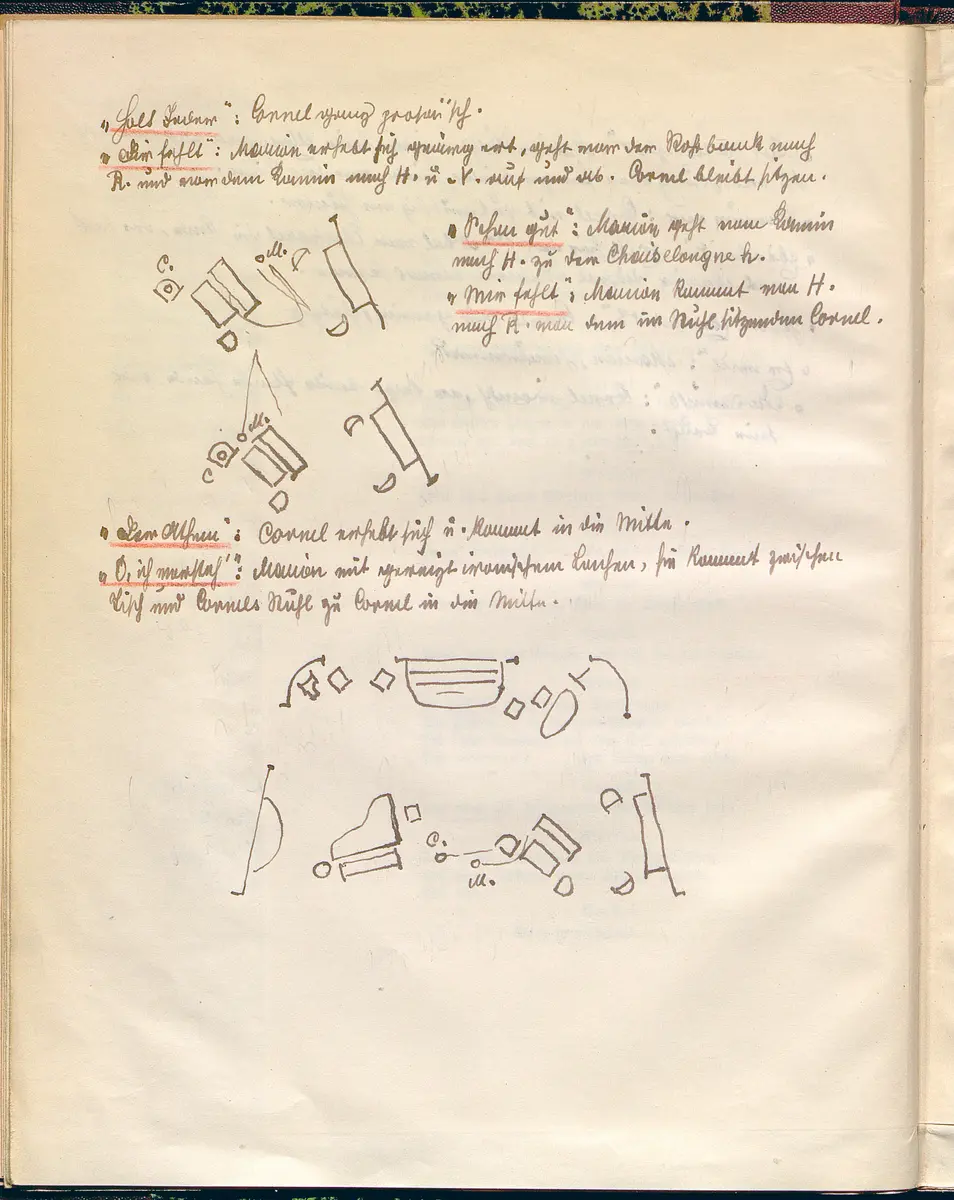 „Holt Jeder“: Cornel ganz prosaisch.
„Dir fehlt“: Marion erhebt sich geärgert, geht von der Rostbank nach
R. und vor dem Kamin nach H. u. V. auf und ab. Cornel bleibt sitzen.
„Schon gut“: Marion geht vom Kamin
nach H. zu dem Chaiselongue h.
„Mir fehlt“: Marion kommt von H.
nach R. von dem im Stuhl sitzenden Cornel.
C.
M.
M.
C
„Dein Athem“: Cornel erhebt sich u. kommt in die Mitte.
„O, ich versteh'“: Marion mit gereizt ironischem Lachen, sie kommt zwischen
Tisch und Cornels Stuhl zu Cornel in die Mitte.
C.
M.